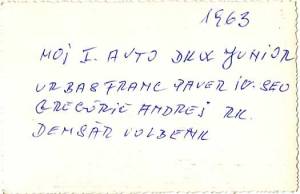 1963
MOJ I. AVTO DKW JUNIOR
URBAS FRANC PAVER
GREGORIČ ANDREJ RK.
DEMŠAR VOLBENK